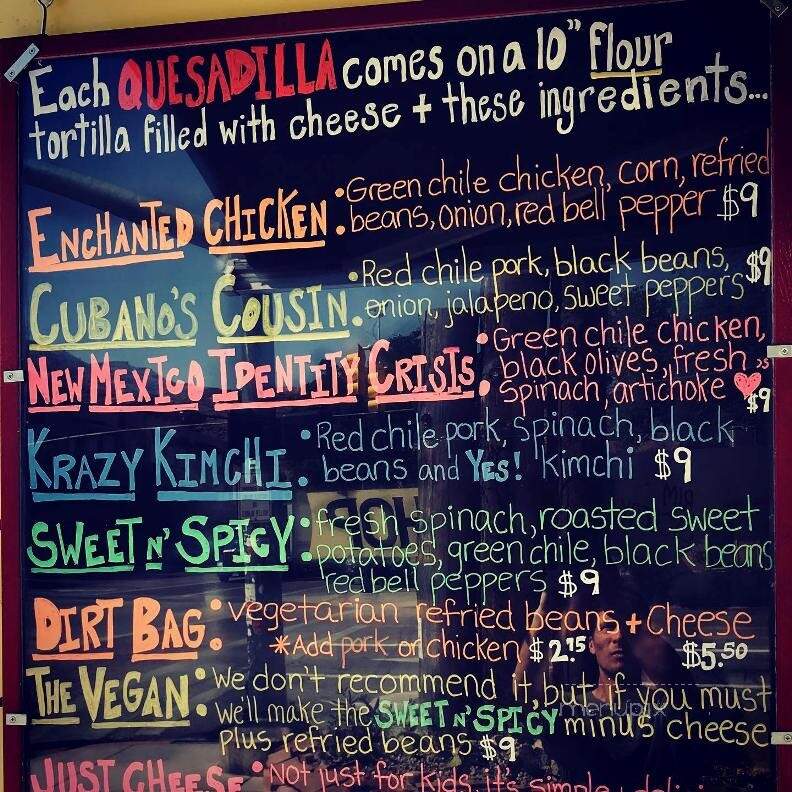 Each QUESADILLA comes on a 10" flour
tortilla filled with cheese + these ingredients...
ENCHANTED CHICKEN • Green chile chicken, corn, refried
beans, onion, red bell pepper $9
CUBANO'S COUSIN • Red chile pork, black beans,
onion, jalapeno, sweet peppers $9
NEW MEXICO IDENTITY CRISIS • Green chile chicken,
black olives, fresh
spinach, artichoke ♥s $9
KRAZY KIMCHI • Red chile pork, spinach, black
beans and YES! kimchi $9
SWEET N' SPICY • fresh spinach, roasted sweet
potatoes, green chile, black beans
red bell peppers $9
DIRT BAG • vegetarian refried beans + Cheese
*Add pork or chicken $2.15 $5.50
THE VEGAN • We don't recommend it, but if you must
we'll make the SWEET N' SPICY minus cheese
plus refried beans $9
menupix
JUST CHEESE • Not just for kids, it's simple